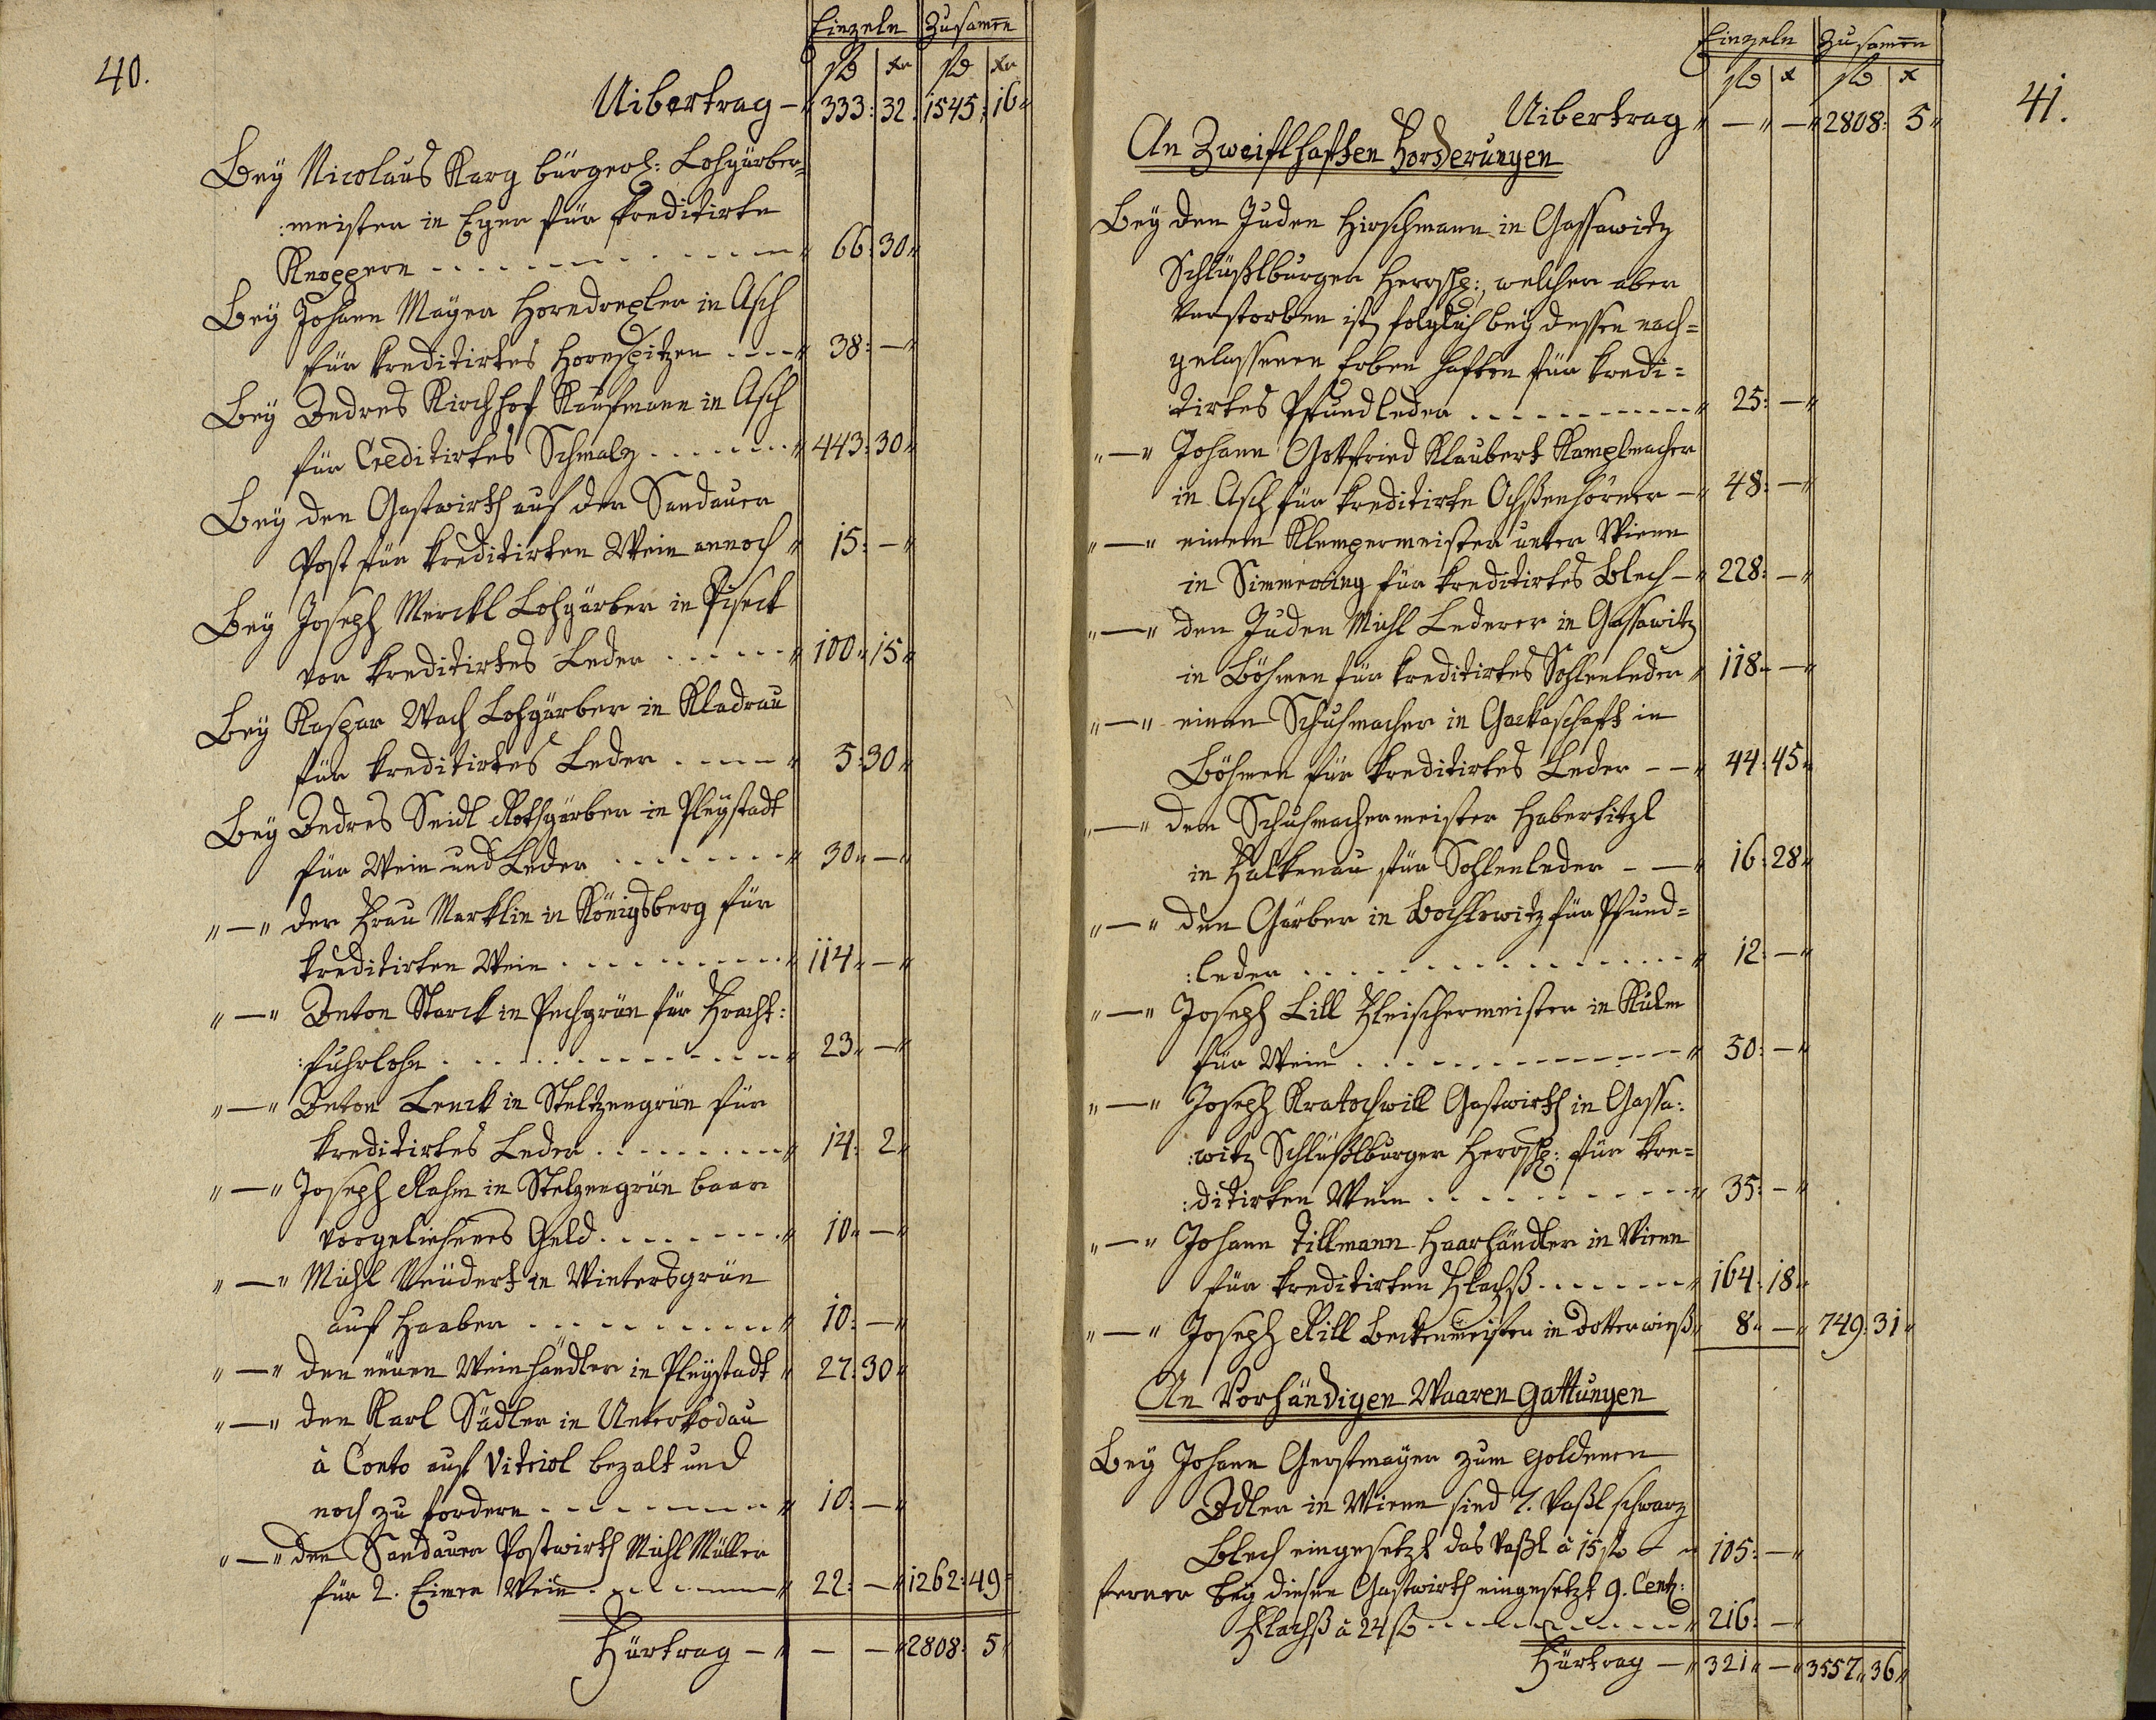 40.
Einzeln Zusamen
fl xr fl xr
Uibertrag — 333: 32. 1545: 16
Bey Nicolaus Karg bürgerl: Lohgärber=
:meister in Eger für kreditirte
Knoppern 66: 30
Bey Johann Mayer Horndrexler in Asch
für kreditirtes Hornspitzen 38: —
Bey Andres Kirchhof Kaufmann in Asch
für Creditirtes Schmalz 443: 30
Bey den Gastwirth auf der Sandauer
Post für kreditirten Wein annoch 15: —
Bey Joseph Merckl Lohgärber in Piseck
vor kreditirtes Leder 100 15
Bey Kaspar Wach Lohgärber in Kladrau
für kreditirtes Leder 5: 30
Bey Andres Seidl Rothgärber in Pleystadt
für Wein und Leder 30 —
„—„ der Frau Marklin in Königsberg für
kreditirten Wein 114 —
„—„ Anton Starck in Pechgrün für Fracht:
:fuhrlohn 23 —
„—„ Anton Lenck in Steltzengrün für
kreditirtes Leder 14: 2
„—„ Joseph Rahm in Stelzengrün baar
vorgeliehenes Geld 10 —
„—„ Michl Neudert in Wintersgrün
auf Haaber 10: —
„—„ den neuen Weinhändler in Pleystadt 27: 30
„—„ den Karl Sädler in Unterkodau
à Conto auf Vitriol bezalt und
noch zu fordern 10: —
„—„ den Sandauer Postwirth Michl Müller
für 2. Eimer Wein 22: — 1262: 49
Fürtrag — — — 2808: 5
41.
Einzeln Zusamen
fl x fl x
Uibertrag — — 2808: 5
An Zweiflhaften Forderungen
Bey den Juden Hirschmann in Gassawitz
Schlüßlburger Herrsch:, welcher aber
verstorben ist, folglich bey dessen nach=
gelassenen Erben haften für kredi=
tirtes Pfundleder 25: —
„—„ Johann Gottfried Klaubert Kamplmacher
in Asch für kreditirte Ochßenhörner — 48: —
„—„ einem Klempermeister unter Wienn
in Simmering für kreditirtes Blech — 228: —
„—„ den Juden Michl Lederer in Gassawitz
in Böhmen für kreditirtes Sohlenleder 118 —
„—„ einen Schuhmacher in Gackaschaft in
Böhmen für kreditirtes Leder 44: 45
„—„ dem Schuhmachermeister Haberkitzl
in Falkenau für Sohlenleder 16: 28
„—„ den Gärber in Bochlowitz für Pfund=
:leder 12: —
„—„ Joseph Lill Fleischermeister in Kulm
für Wein 50: —
„—„ Joseph Kratochwill Gastwirth in Gassa:
:witz Schlüßlburger Herrsch: für kre=
:ditirten Wein 35: —
„—„ Johann Tillmann Haarhändler in Wienn
für kreditirten Flachß 164: 18
„—„ Joseph Rill Beckenmeister in Dotterwieß 8 — 749: 31
An Vorhändigen Waaren Gattungen
Bey Johann Gerstmayer zum goldenen
Adler in Wienn sind 7. Vaßl schwarz
Blech eingesetzt das Vaßl à 15 fl 105: —
ferner bey diesen Gastwirth eingesetzt 9. Centz:
Flachß à 24 fl 216: —
Fürtrag — 321 — 3557 36